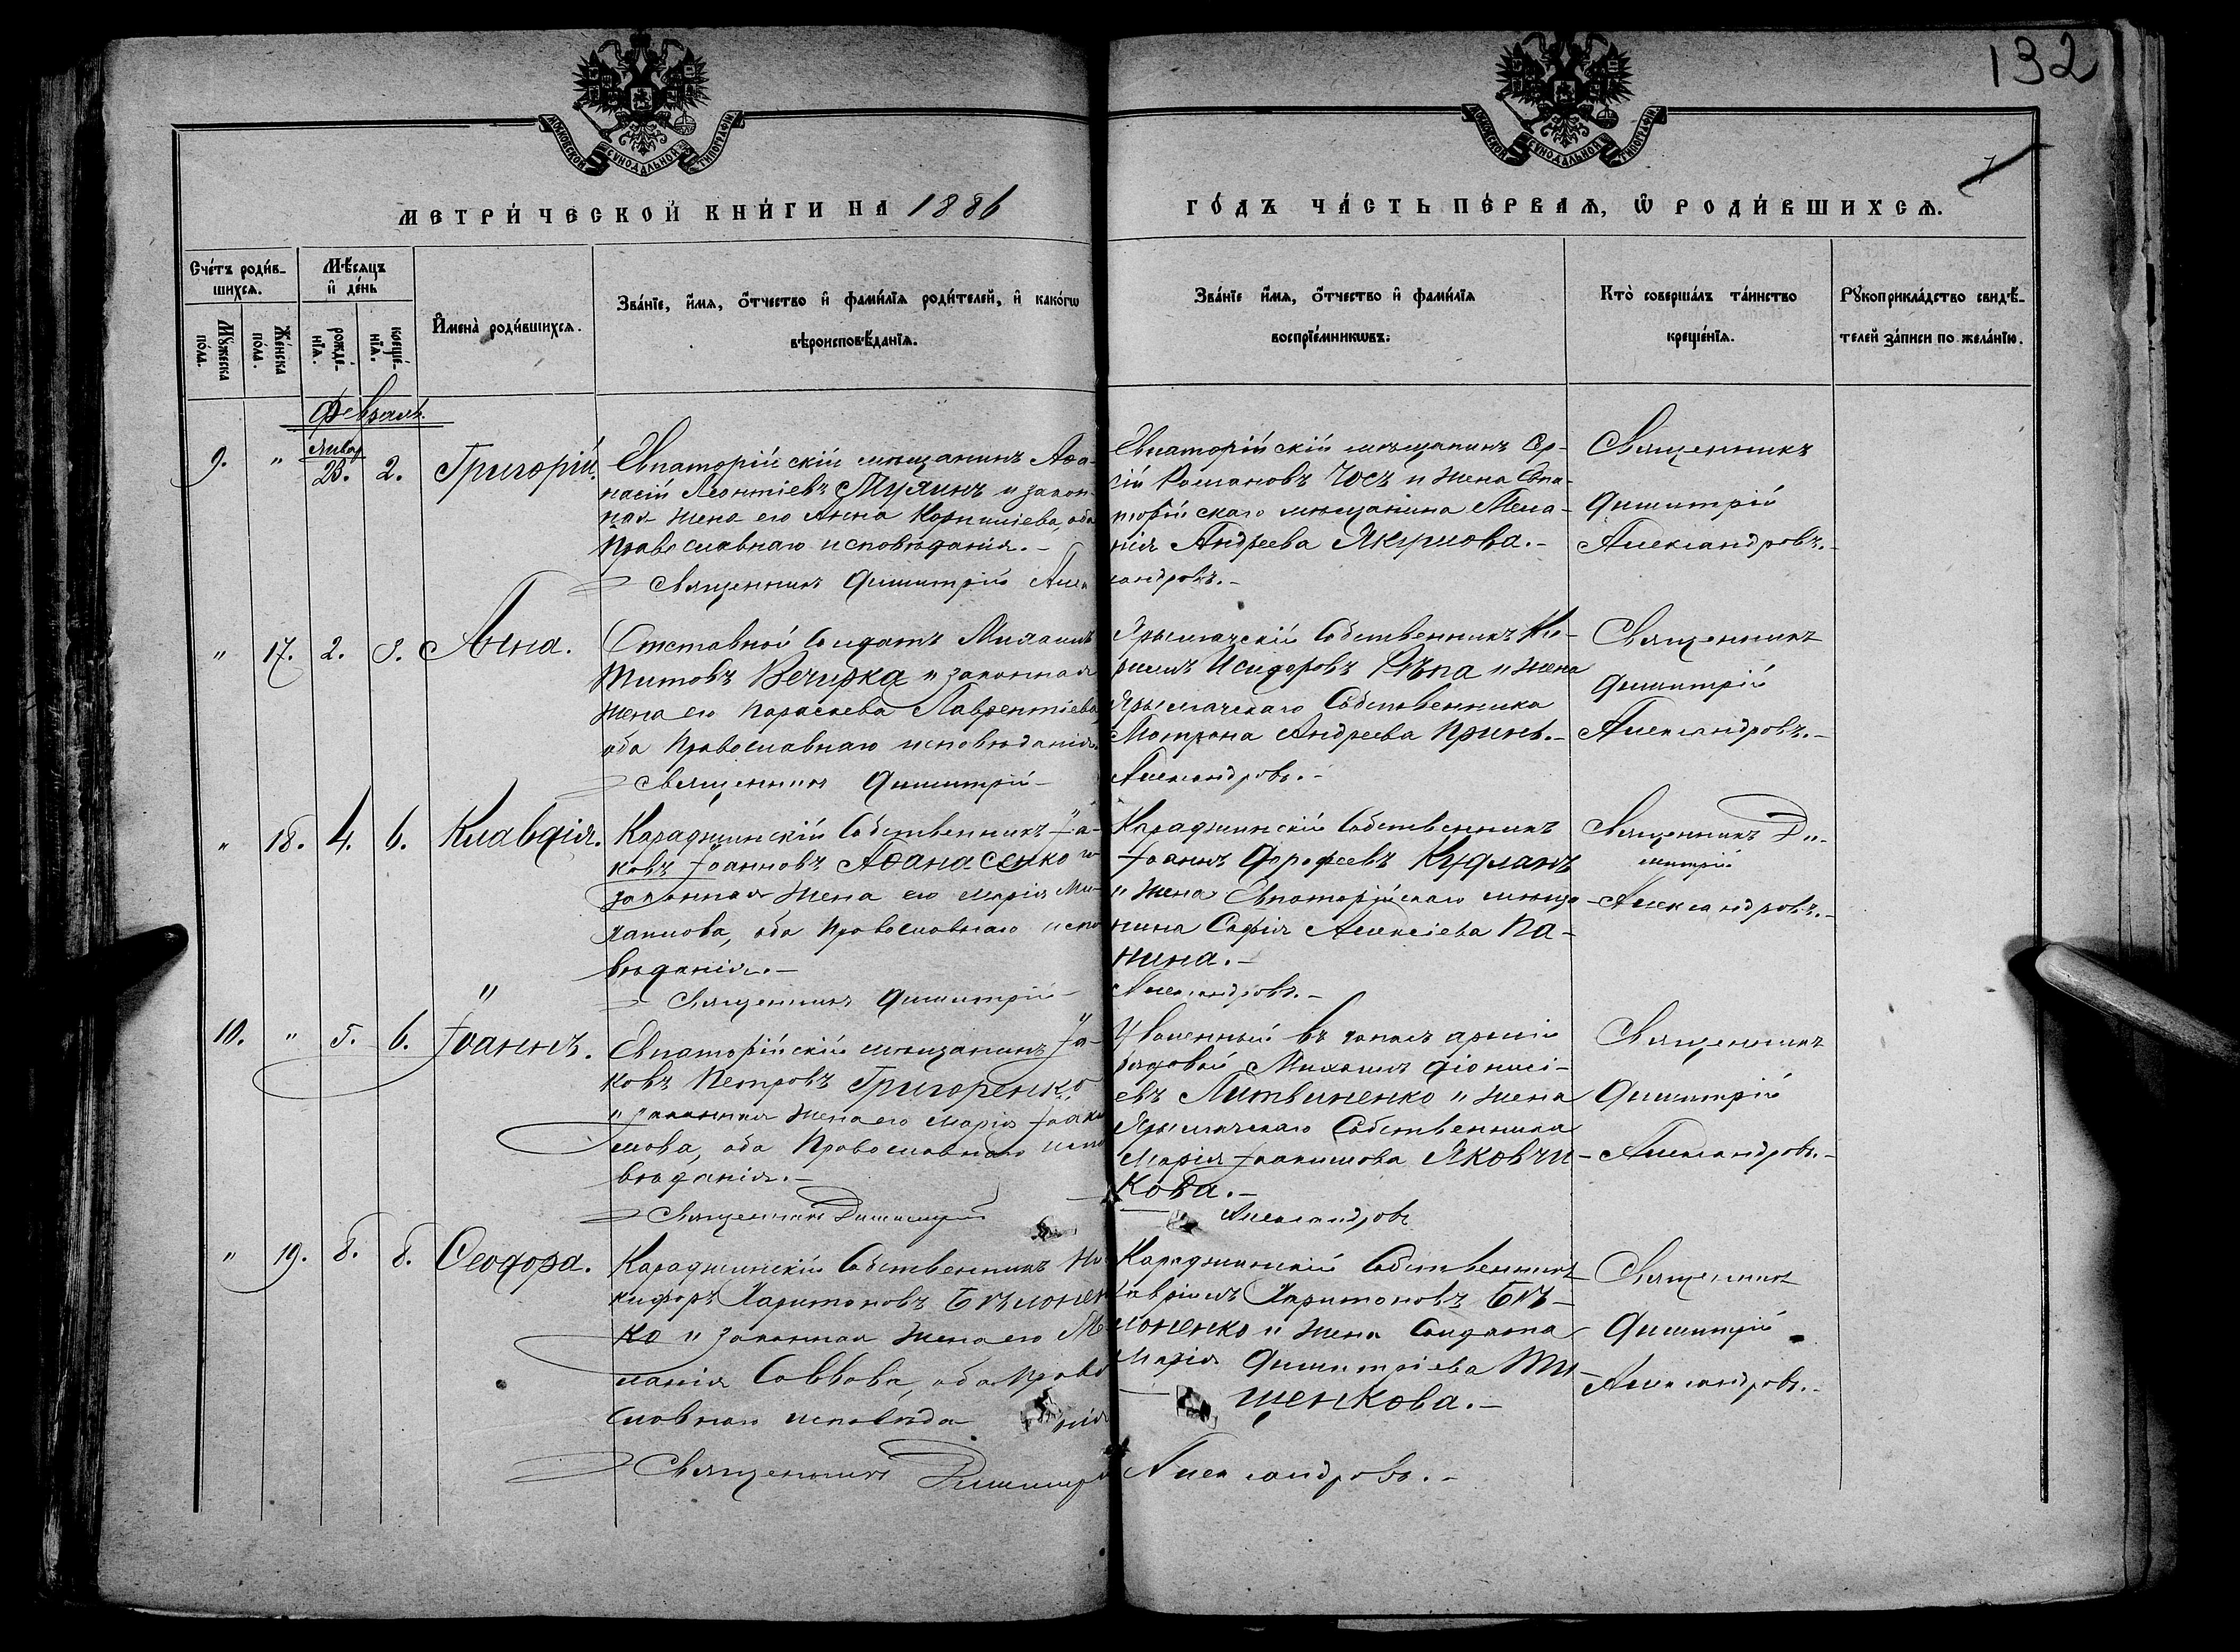 132
7
МОСКОВСКОЙ СѴНОДАЛЬНОЙ ТИПОГРАФІИ
МОСКОВСКОЙ СѴНОДАЛЬНОЙ ТИПОГРАФІИ
МЕТРИ́ЧЕСКОЙ КНИ́ГИ НА 1886
ГО́ДЪ ЧА́СТЬ ПЕ́РВАѦ, Ѡ҆ РОДИ́ВШИХСѦ.
Счéтъ роди́в-
шихсѧ.
Мꙋ́жеска по́ла.
Же́нска по́ла.
Мѣ́сѧцъ
и҆ де́нь
рожде́-
нїѧ.
креще́-
нїѧ.
И҆мена̀ роди́вшихсѧ.
Зва́нїе, и҆́мѧ, ѻ҆́тчество и҆ фами́лїѧ роди́телей, и҆ како́гѡ
вѣроисповѣ́данїѧ.
Зва́нїе и҆́мѧ, ѻ҆́тчество и҆ фами́лїѧ
воспрїе́мникѡвъ.
Кто̀ соверша́лъ та́инство
креще́нїѧ.
Рꙋкоприкла́дство свидѣ́-
телей за́писи по жела́нїю.
Февраль.
9. " Январ 23. 2. Григорій.
Евпаторійскій мѣщанинъ Аѳа-
насій Леонтіевъ Мулинъ и закон-
ная жена его Анна Корниліева, оба
Православнаго исповѣданія.-
Священникъ Димитрій Алек
Евпаторійскій мѣщанинъ Сер-
гій Романовъ Чосъ и жена Евпа-
торійскаго мѣщанина Мела-
нія Андреева Якунова.-
сандровъ.-
Священникъ
Димитрій
Александровъ.-
" 17. 2. 3. Анна.
Отставной Солдатъ Михаилъ
Титовъ Вечирка и законная
жена его Параскева Лаврентіева,
оба Православнаго исповѣданія.
Священникъ Димитрій-
Ярылгачскій Собственникъ Ки-
риллъ Исидоровъ Рѣпа и жена
Ярылгачскаго Собственника
Матрона Андреева Принь.-
Александровъ.-
Священникъ
Димитрій
Александровъ.-
" 18. 4. 6. Клавдія.
Караджинскій Собственникъ Іа-
ковъ Іоанновъ Аѳанасенко и
законная жена его Марія Ми-
хаилова, оба Православнаго испо
вѣданія.-
Священникъ Димитрій-
Караджинскій Собственникъ
Іоаннъ Дорофеевъ Кудланъ
и жена Евпаторійскаго мѣща-
нина Софія Алексіева Па-
нина.-
Александровъ.-
Священникъ Ди-
митрій
Александровъ.-
10. " 5. 6. Іоаннъ.
Евпаторійскій мѣщанинъ Іа-
ковъ Петровъ Григоренко
и законная жена его Марія Іоаки
мова, оба Православнаго испо
вѣданія.-
Священникъ Димитрій
Уволенный въ запасъ арміи
рядовой Михаилъ Діонисі-
евъ Литвиненко и жена
Ярылгачскаго Собственника
Марія Іоакимова Яковчи-
кова.-
Александровъ
Священникъ
Димитрій
Александровъ.-
" 19. 8. 8. Ѳеодора.
Караджинскій Собственникъ Ни
кифоръ Харитоновъ Бѣлонен
ко и законная жена его Ме
ланія Саввова, оба Право
славнаго исповѣда нія
Священникъ Димитрій
Караджинскій Собственникъ
Гавріилъ Харитоновъ Бѣ-
лоненко и жена Солдата
Марія Димитріева Ти-
щенкова.-
Александровъ.-
Священникъ
Димитрій
Александровъ.-